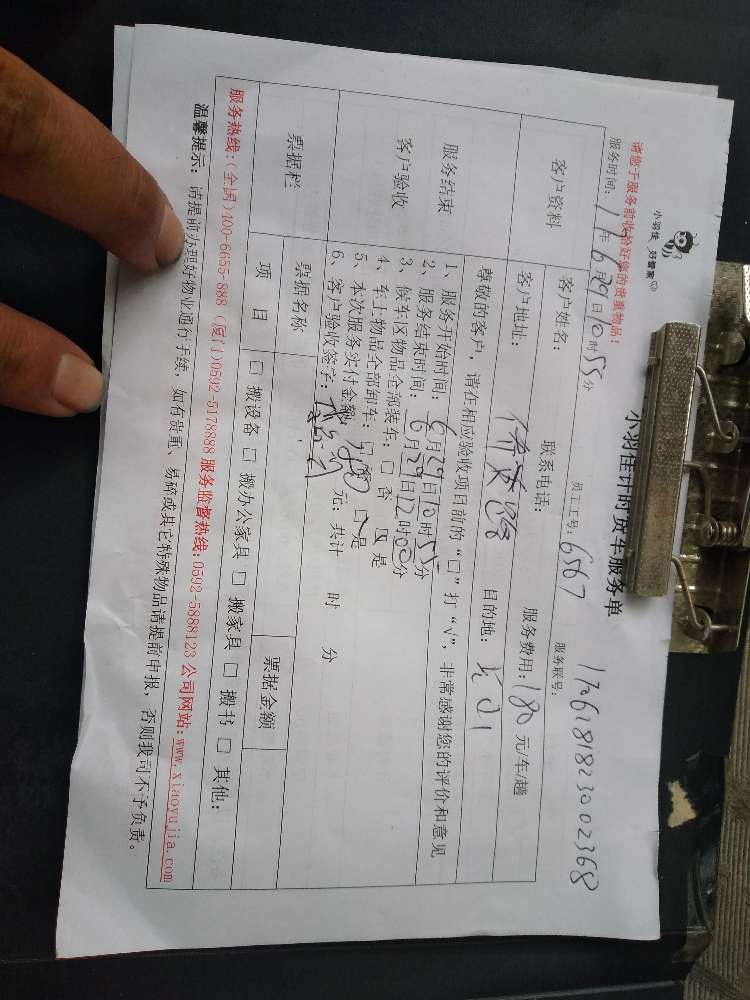 小羽佳 好管家
小羽佳计时货车服务单
请您于服务前收拾好您的贵重物品！
服务时间：17年6月29日10时55分 员工工号：6567 服务联号：1706281823002368
客户资料 客户姓名： 联系电话： 服务费用：180元/车/趟
客户地址： 目的地：
服务结束
客户验收
尊敬的客户，请在相应验收项目前的“□”打“√”，非常感谢您的评价和意见
1、服务开始时间：6月29日10时55分
2、服务结束时间：6月29日12时00分
3、候车区物品全部装车：□否 □是
4、车上物品全部卸车：□否 □是
5、本次服务实付金额：180元；共计 时 分
6、客户验收签字：
票据栏 票据名称 票据金额
项目 □搬设备 □搬办公家具 □搬家具 □搬书 □其他：
服务热线：(全国)400-6655-888 (厦门)0592-5178888 服务监督热线：0592-5888123 公司网站：www.xiaoyujia.com
温馨提示：请提前办理好物业通行手续，如有贵重、易碎或其它特殊物品请提前申报，否则我司不予负责。